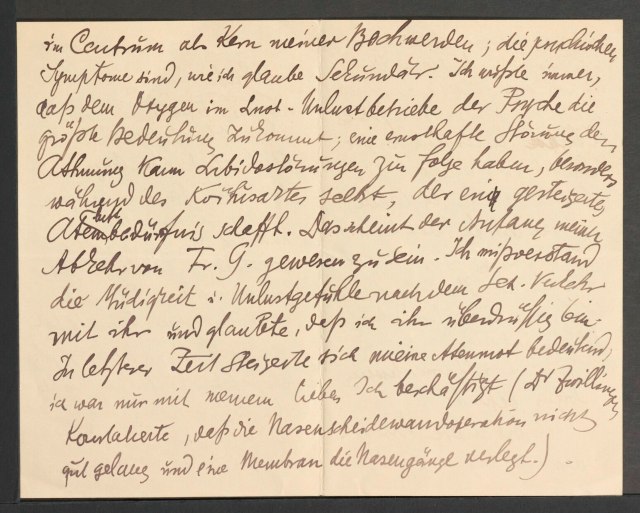 im Centrum als Kern meiner Beschwerden; die psychischen
Symptome sind, wie ich glaube Sekundär. Ich wußte immer,
daß dem Oxygen im Lust-Unlustbetriebe der Psyche die
größte Bedeutung zukommt; eine ernsthafte Störung der
Athmung kann Libidostörungen zur folge haben, besonders
während des Koitusactes selbst, der ein gesteigertes
Luftbedürfnis schafft. Das scheint der Anfang meiner
Abkehr von Fr. G. gewesen zu sein. Ich mißverstand
die Müdigkeit u. Unlustgefühle nach dem sex. Verkehr
mit ihr und glaubte, daß ich ihr überdrüssig bin.
In letzterer Zeit steigerte sich meine Atemnot bedeutend;
ich war nur mit meinem lieben Ich beschäftigt (Dr Zwillinger
Konstatierte, daß die Nasenscheidewandoperation nicht
gut gelang und eine Membran die Nasengänge verlegt.).